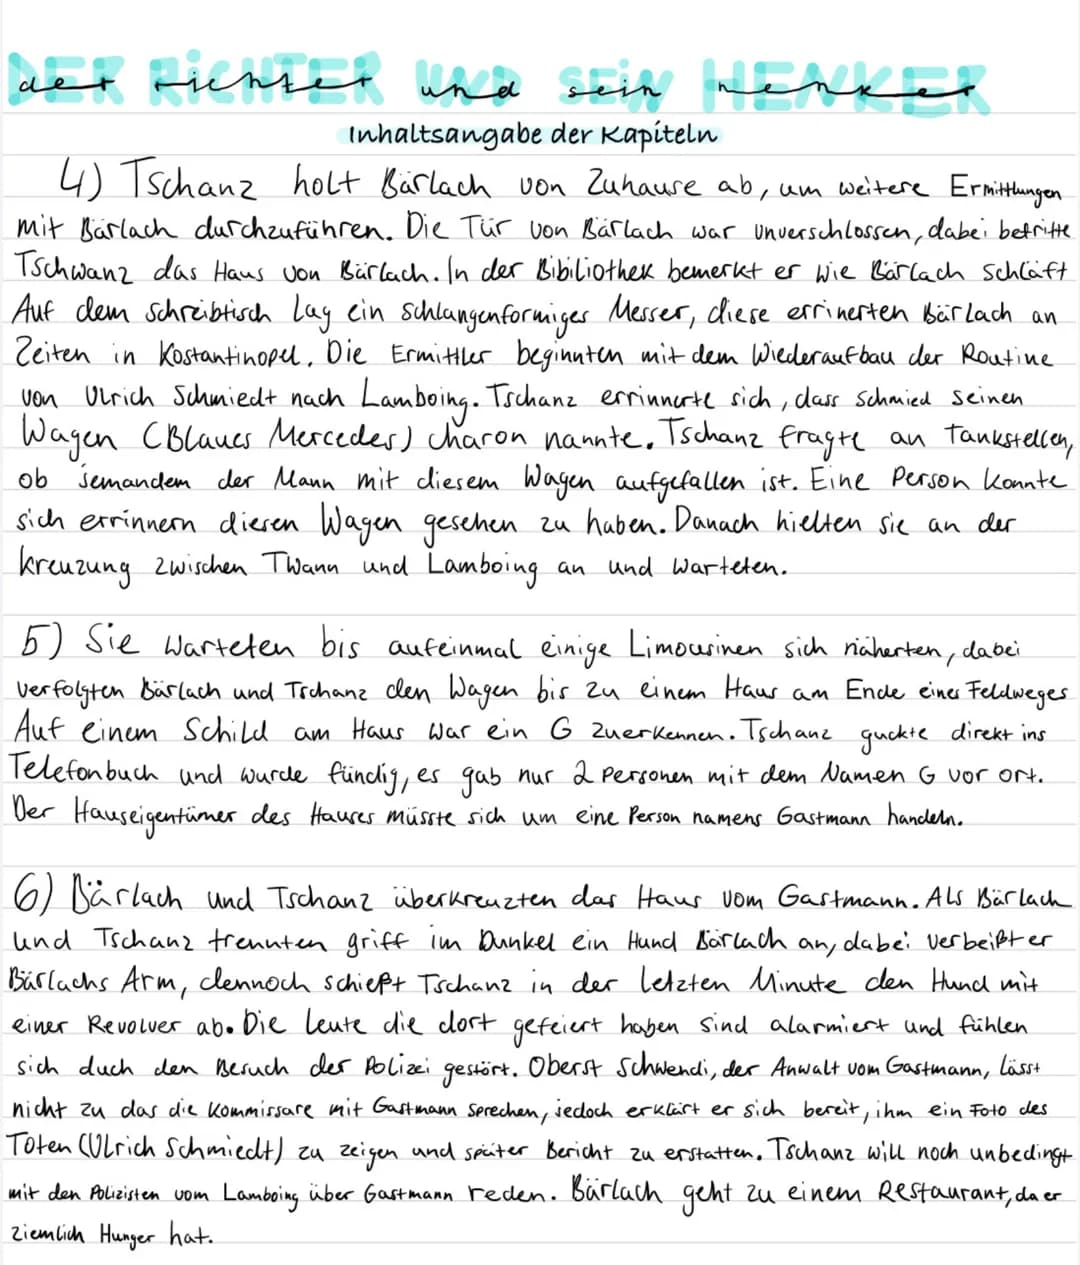 DER RiCHTER UND SEiN HENKER
der richter und sein henker
Inhaltsangabe der Kapiteln
4) Tschanz holt Bärlach von Zuhause ab, um weitere Ermittlungen
mit Bärlach durchzuführen. Die Tür von Bärlach war unverschlossen, dabei betritte
Tschwanz das Haus von Bärlach. In der Bibiliothek bemerkt er wie Bärlach schläft
Auf dem Schreibtisch lag ein schlangenformiges Messer, diese errinerten Bärlach an
Zeiten in Kostantinopel. Die Ermittler beginnten mit dem Wiederaufbau der Routine
von Ulrich Schmiedt nach Lamboing. Tschanz errinnerte sich, dass Schmied seinen
Wagen (Blaues Mercedes) charon nannte. Tschanz fragte an Tankstellen,
ob jemandem der Mann mit diesem Wagen aufgefallen ist. Eine Person konnte
sich errinnern diesen Wagen gesehen zu haben. Danach hielten sie an der
kreuzung zwischen Twann und Lamboing an und warteten.
5) Sie warteten bis aufeinmal einige Limousinen sich näherten, dabei
verfolgten Bärlach und Tschanz den Wagen bis zu einem Haus am Ende eines Feldweges
Auf einem Schild am Haus war ein G zuerkennen. Tschanz guckte direkt ins
Telefonbuch und wurde fündig, es gab nur 2 Personen mit dem Namen G vor ort.
Der Hauseigentümer des Hauses müsste sich um eine Person namens Gastmann handeln.
6) Bärlach und Tschanz überkreuzten das Haus vom Gastmann. Als Bärlach
und Tschanz trennten griff im Dunkel ein Hund Bärlach an, dabei verbeißt er
Bärlachs Arm, dennoch schießt Tschanz in der letzten Minute den Hund mit
einer Revolver ab. Die leute die dort gefeiert haben sind alarmiert und fühlen
sich duch den Besuch der Polizei gestört. Oberst Schwendi, der Anwalt vom Gastmann, lässt
nicht zu das die Kommissare mit Gastmann sprechen, jedoch erklärt er sich bereit, ihm ein Foto des
Toten (Ulrich Schmiedt) zu zeigen und später Bericht zu erstatten. Tschanz will noch unbedingt
mit den Polizisten vom Lamboing über Gastmann reden. Bärlach geht zu einem Restaurant, da er
ziemlich Hunger hat.